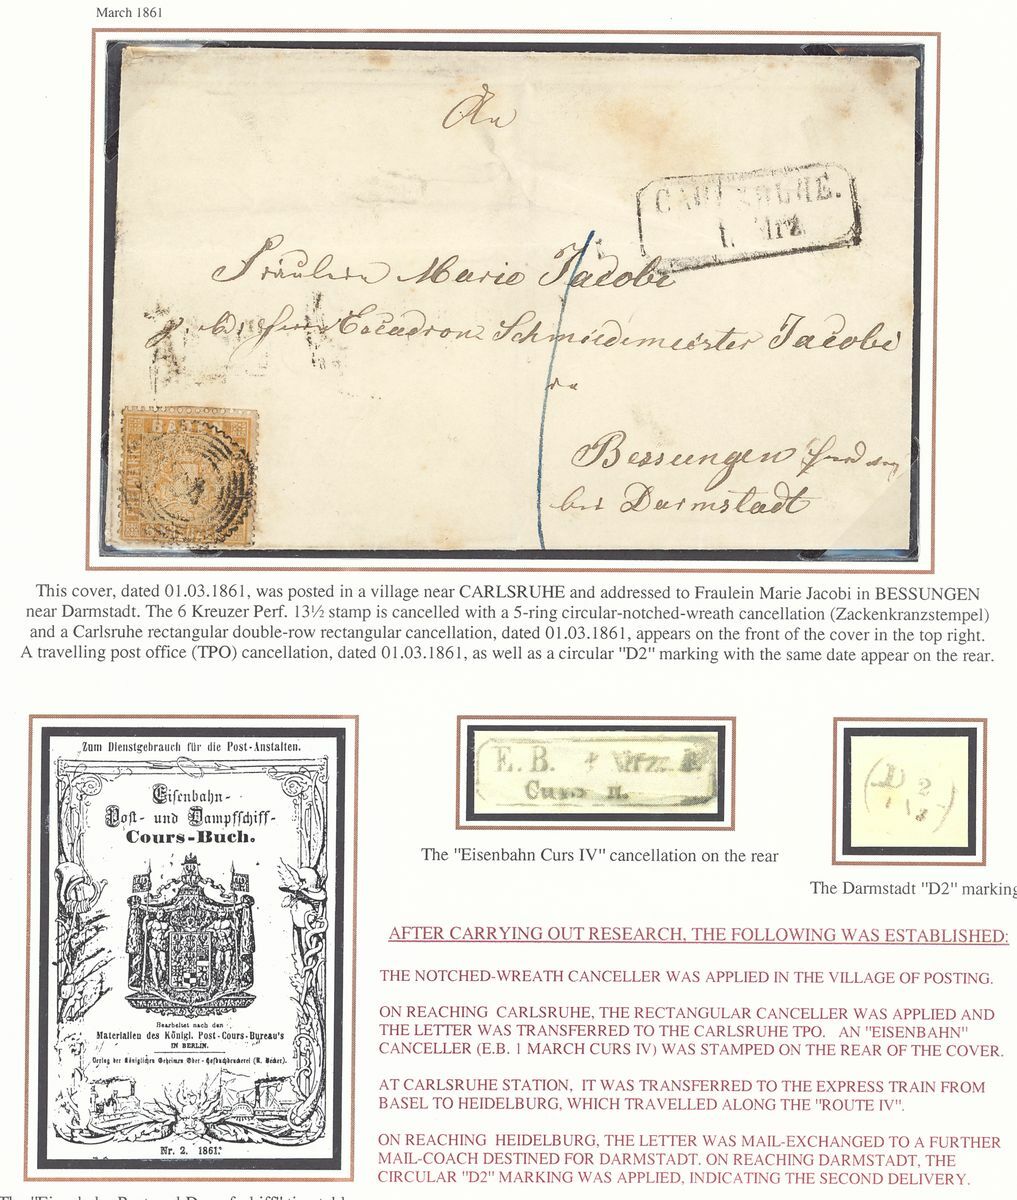 March 1861
An
CARLSRUHE.
1. Mrz.
Fräulein Marie Jacobi
Herrn Escadron Schmiedemeister Jacobi
Bessungen
bei Darmstadt
BADEN
This cover, dated 01.03.1861, was posted in a village near CARLSRUHE and addressed to Fraulein Marie Jacobi in BESSUNGEN
near Darmstadt. The 6 Kreuzer Perf. 13½ stamp is cancelled with a 5-ring circular-notched-wreath cancellation (Zackenkranzstempel)
and a Carlsruhe rectangular double-row rectangular cancellation, dated 01.03.1861, appears on the front of the cover in the top right.
A travelling post office (TPO) cancellation, dated 01.03.1861, as well as a circular "D2" marking with the same date appear on the rear.
Zum Dienstgebrauch für die Post-Anstalten.
Eisenbahn-
Post- und Dampfschiff-
Cours-Buch.
Bearbeitet nach den
Materialien des Königl. Post-Cours-Bureau's
IN BERLIN.
Verlag der Königlichen Geheimen Ober-Hofbuchdruckerei (R. Decker).
Nr. 2. 1861.
E. B. Mrz.
Curs
The "Eisenbahn Curs IV" cancellation on the rear
D 2
The Darmstadt "D2" marking
AFTER CARRYING OUT RESEARCH, THE FOLLOWING WAS ESTABLISHED:
THE NOTCHED-WREATH CANCELLER WAS APPLIED IN THE VILLAGE OF POSTING.
ON REACHING CARLSRUHE, THE RECTANGULAR CANCELLER WAS APPLIED AND
THE LETTER WAS TRANSFERRED TO THE CARLSRUHE TPO. AN "EISENBAHN"
CANCELLER (E.B. 1 MARCH CURS IV) WAS STAMPED ON THE REAR OF THE COVER.
AT CARLSRUHE STATION, IT WAS TRANSFERRED TO THE EXPRESS TRAIN FROM
BASEL TO HEIDELBURG, WHICH TRAVELLED ALONG THE "ROUTE IV".
ON REACHING HEIDELBURG, THE LETTER WAS MAIL-EXCHANGED TO A FURTHER
MAIL-COACH DESTINED FOR DARMSTADT. ON REACHING DARMSTADT, THE
CIRCULAR "D2" MARKING WAS APPLIED, INDICATING THE SECOND DELIVERY.